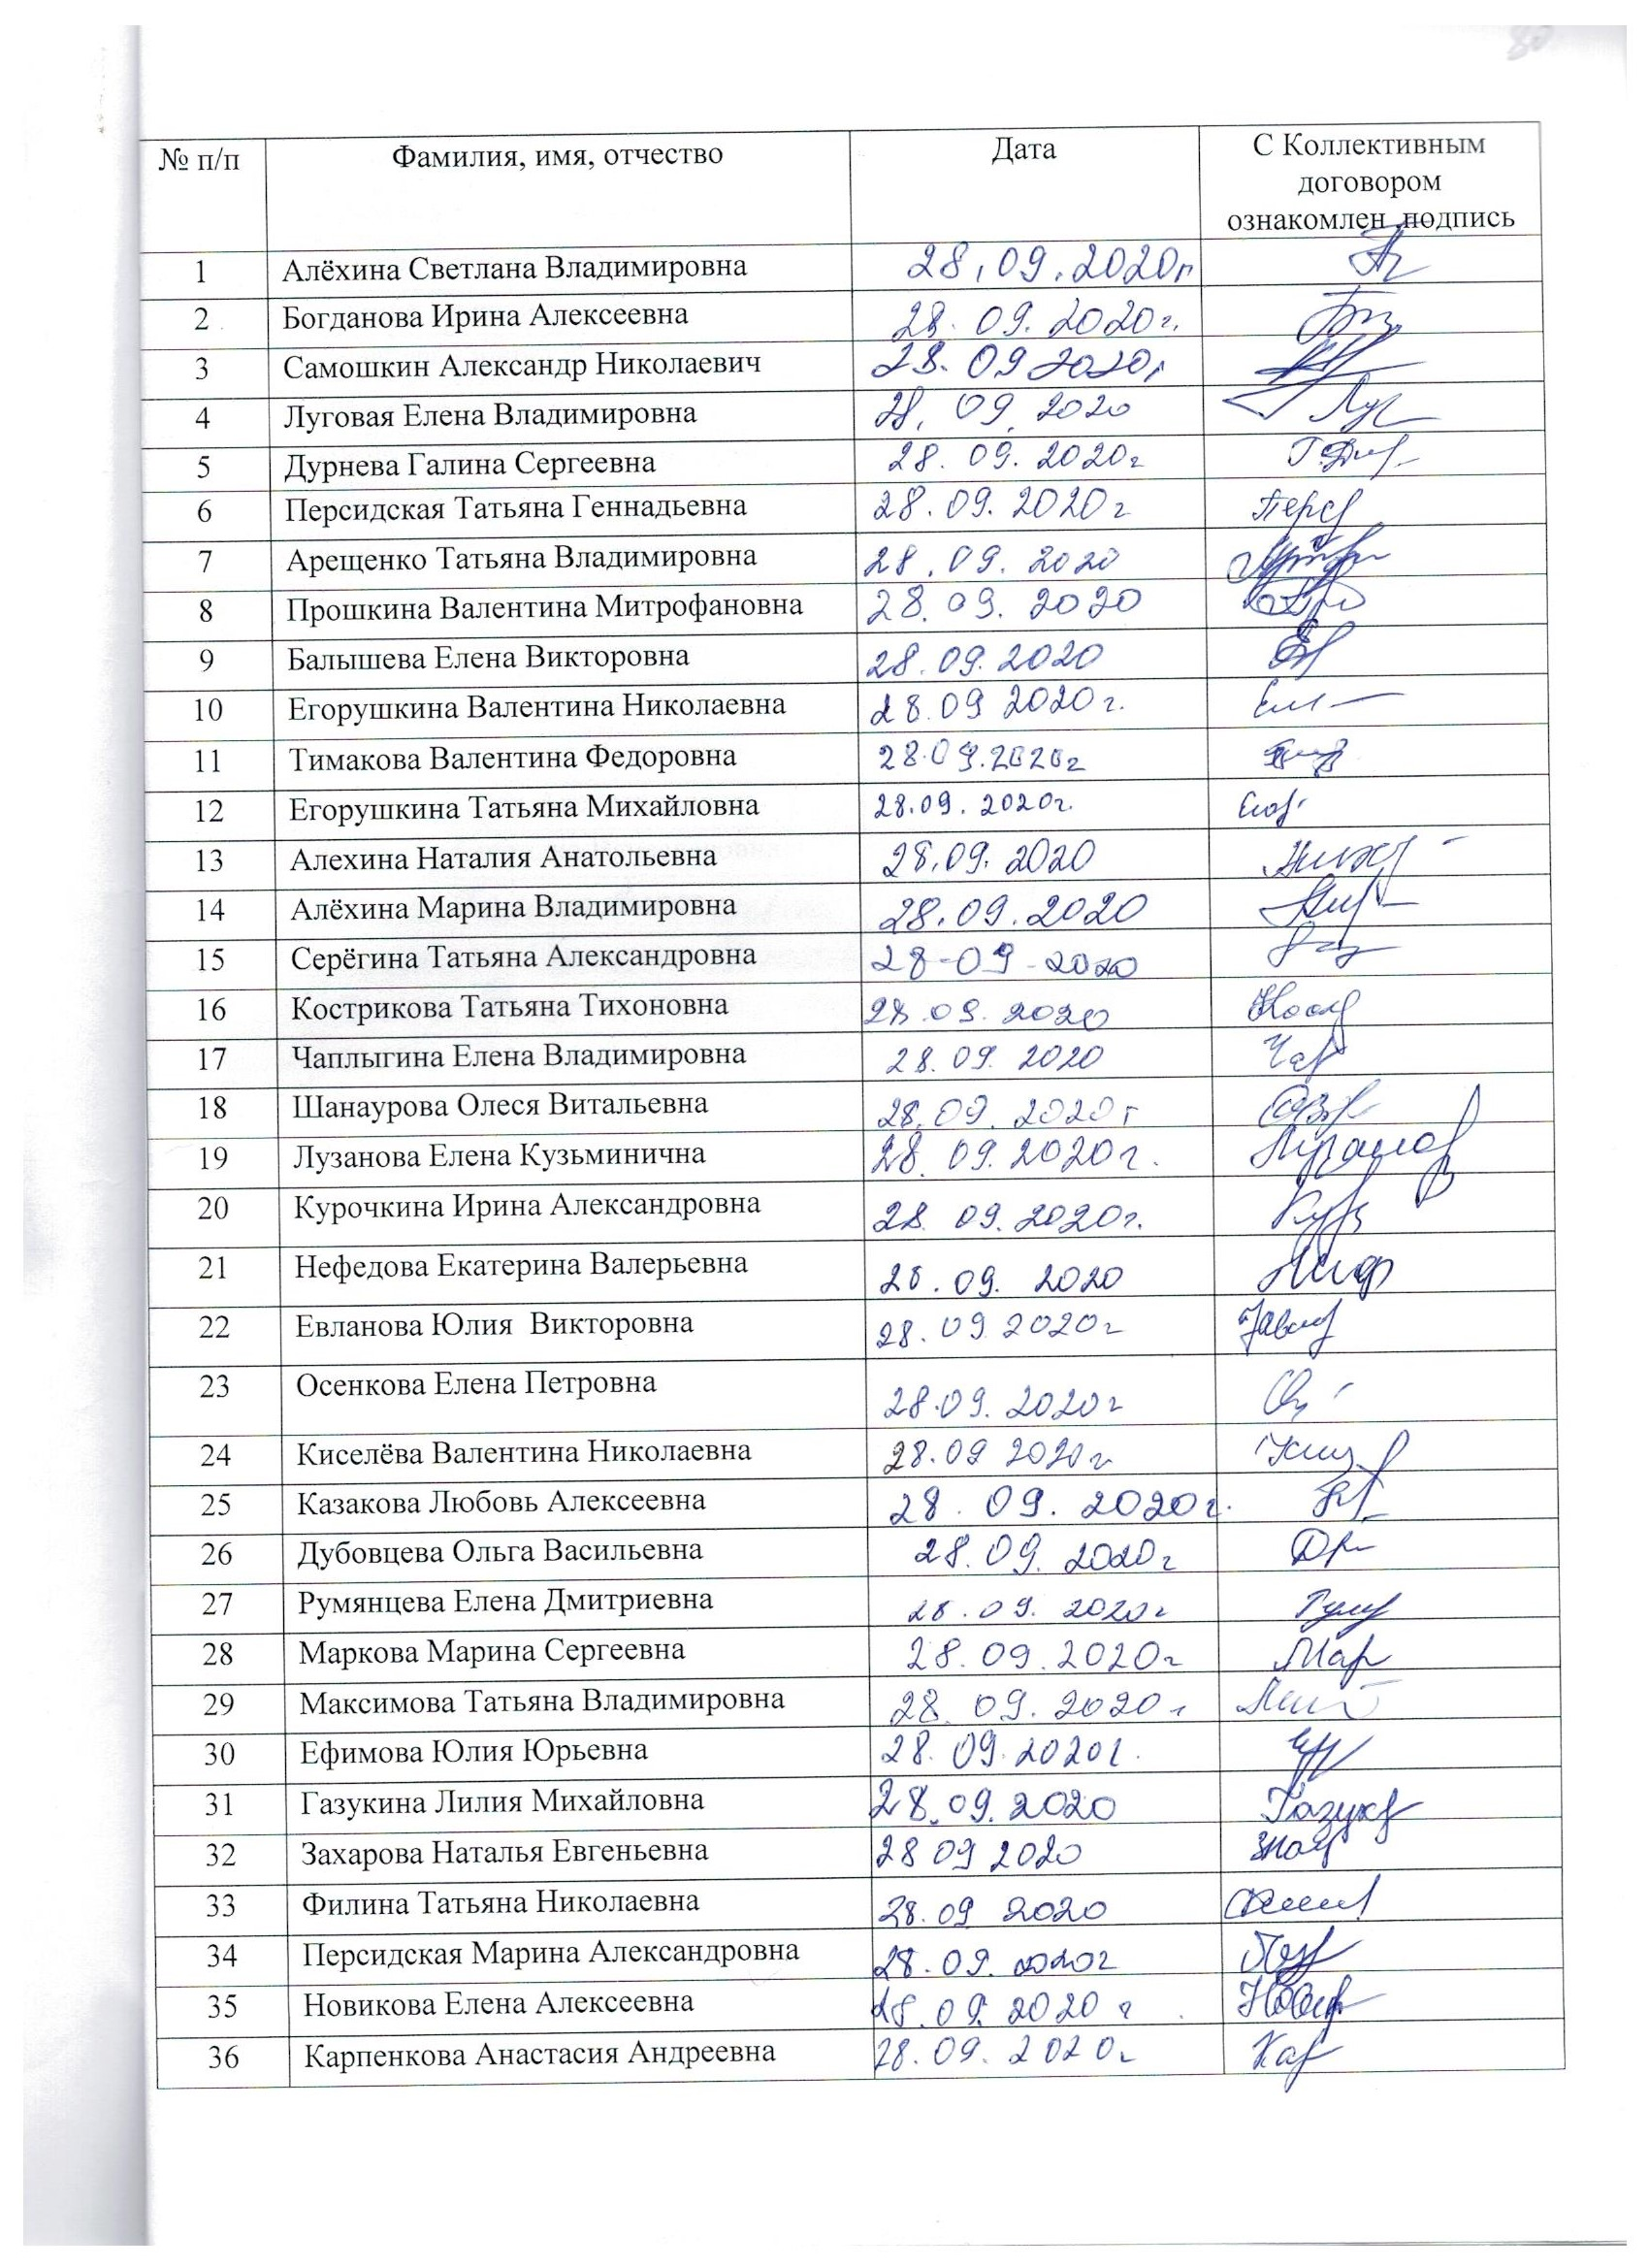 № п/п Фамилия, имя, отчество Дата С Коллективным
договором
ознакомлен подпись
1 Алёхина Светлана Владимировна 28.09.2020г
2 Богданова Ирина Алексеевна 28.09.2020г.
3 Самошкин Александр Николаевич 28.09 2020г
4 Луговая Елена Владимировна 28.09.2020 Луг
5 Дурнева Галина Сергеевна 28.09.2020г
6 Персидская Татьяна Геннадьевна 28.09.2020г Перс
7 Арещенко Татьяна Владимировна 28.09.2020
8 Прошкина Валентина Митрофановна 28.09.2020
9 Балышева Елена Викторовна 28.09.2020
10 Егорушкина Валентина Николаевна 28.09 2020г.
11 Тимакова Валентина Федоровна 28.09.2020г
12 Егорушкина Татьяна Михайловна 28.09.2020г.
13 Алехина Наталия Анатольевна 28.09.2020
14 Алёхина Марина Владимировна 28.09.2020
15 Серёгина Татьяна Александровна 28-09-2020
16 Кострикова Татьяна Тихоновна 28.09.2020
17 Чаплыгина Елена Владимировна 28.09.2020 Чап
18 Шанаурова Олеся Витальевна 28.09.2020г
19 Лузанова Елена Кузьминична 28.09.2020г.
20 Курочкина Ирина Александровна 28.09.2020г.
21 Нефедова Екатерина Валерьевна 28.09.2020
22 Евланова Юлия Викторовна 28.09 2020г
23 Осенкова Елена Петровна 28.09.2020г
24 Киселёва Валентина Николаевна 28.09 2020г
25 Казакова Любовь Алексеевна 28.09.2020г.
26 Дубовцева Ольга Васильевна 28.09.2020г
27 Румянцева Елена Дмитриевна 28.09.2020г
28 Маркова Марина Сергеевна 28.09.2020г Мар
29 Максимова Татьяна Владимировна 28.09.2020г
30 Ефимова Юлия Юрьевна 28.09.2020г.
31 Газукина Лилия Михайловна 28.09.2020 Газук
32 Захарова Наталья Евгеньевна 28 09 2020
33 Филина Татьяна Николаевна 28.09 2020
34 Персидская Марина Александровна 28.09.2020г
35 Новикова Елена Алексеевна 28.09.2020г
36 Карпенкова Анастасия Андреевна 28.09.2020г Кар